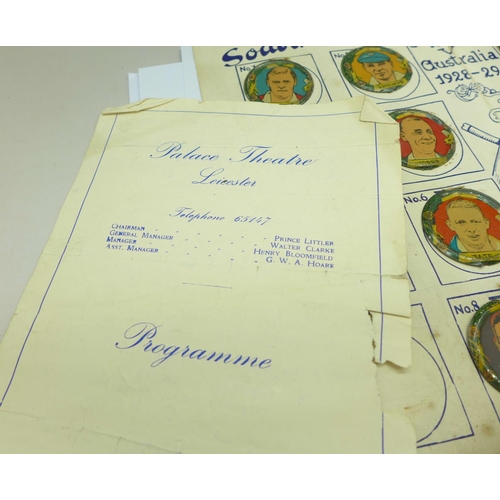 Palace Theatre
Leicester
Telephone 65147
CHAIRMAN - - - - - - PRINCE LITTLER
GENERAL MANAGER - - - - - WALTER CLARKE
MANAGER - - - - - - HENRY BLOOMFIELD
ASST. MANAGER - - - - - - G. W. A. HOARE
Programme
Australia
1928-29
No.6
No.8